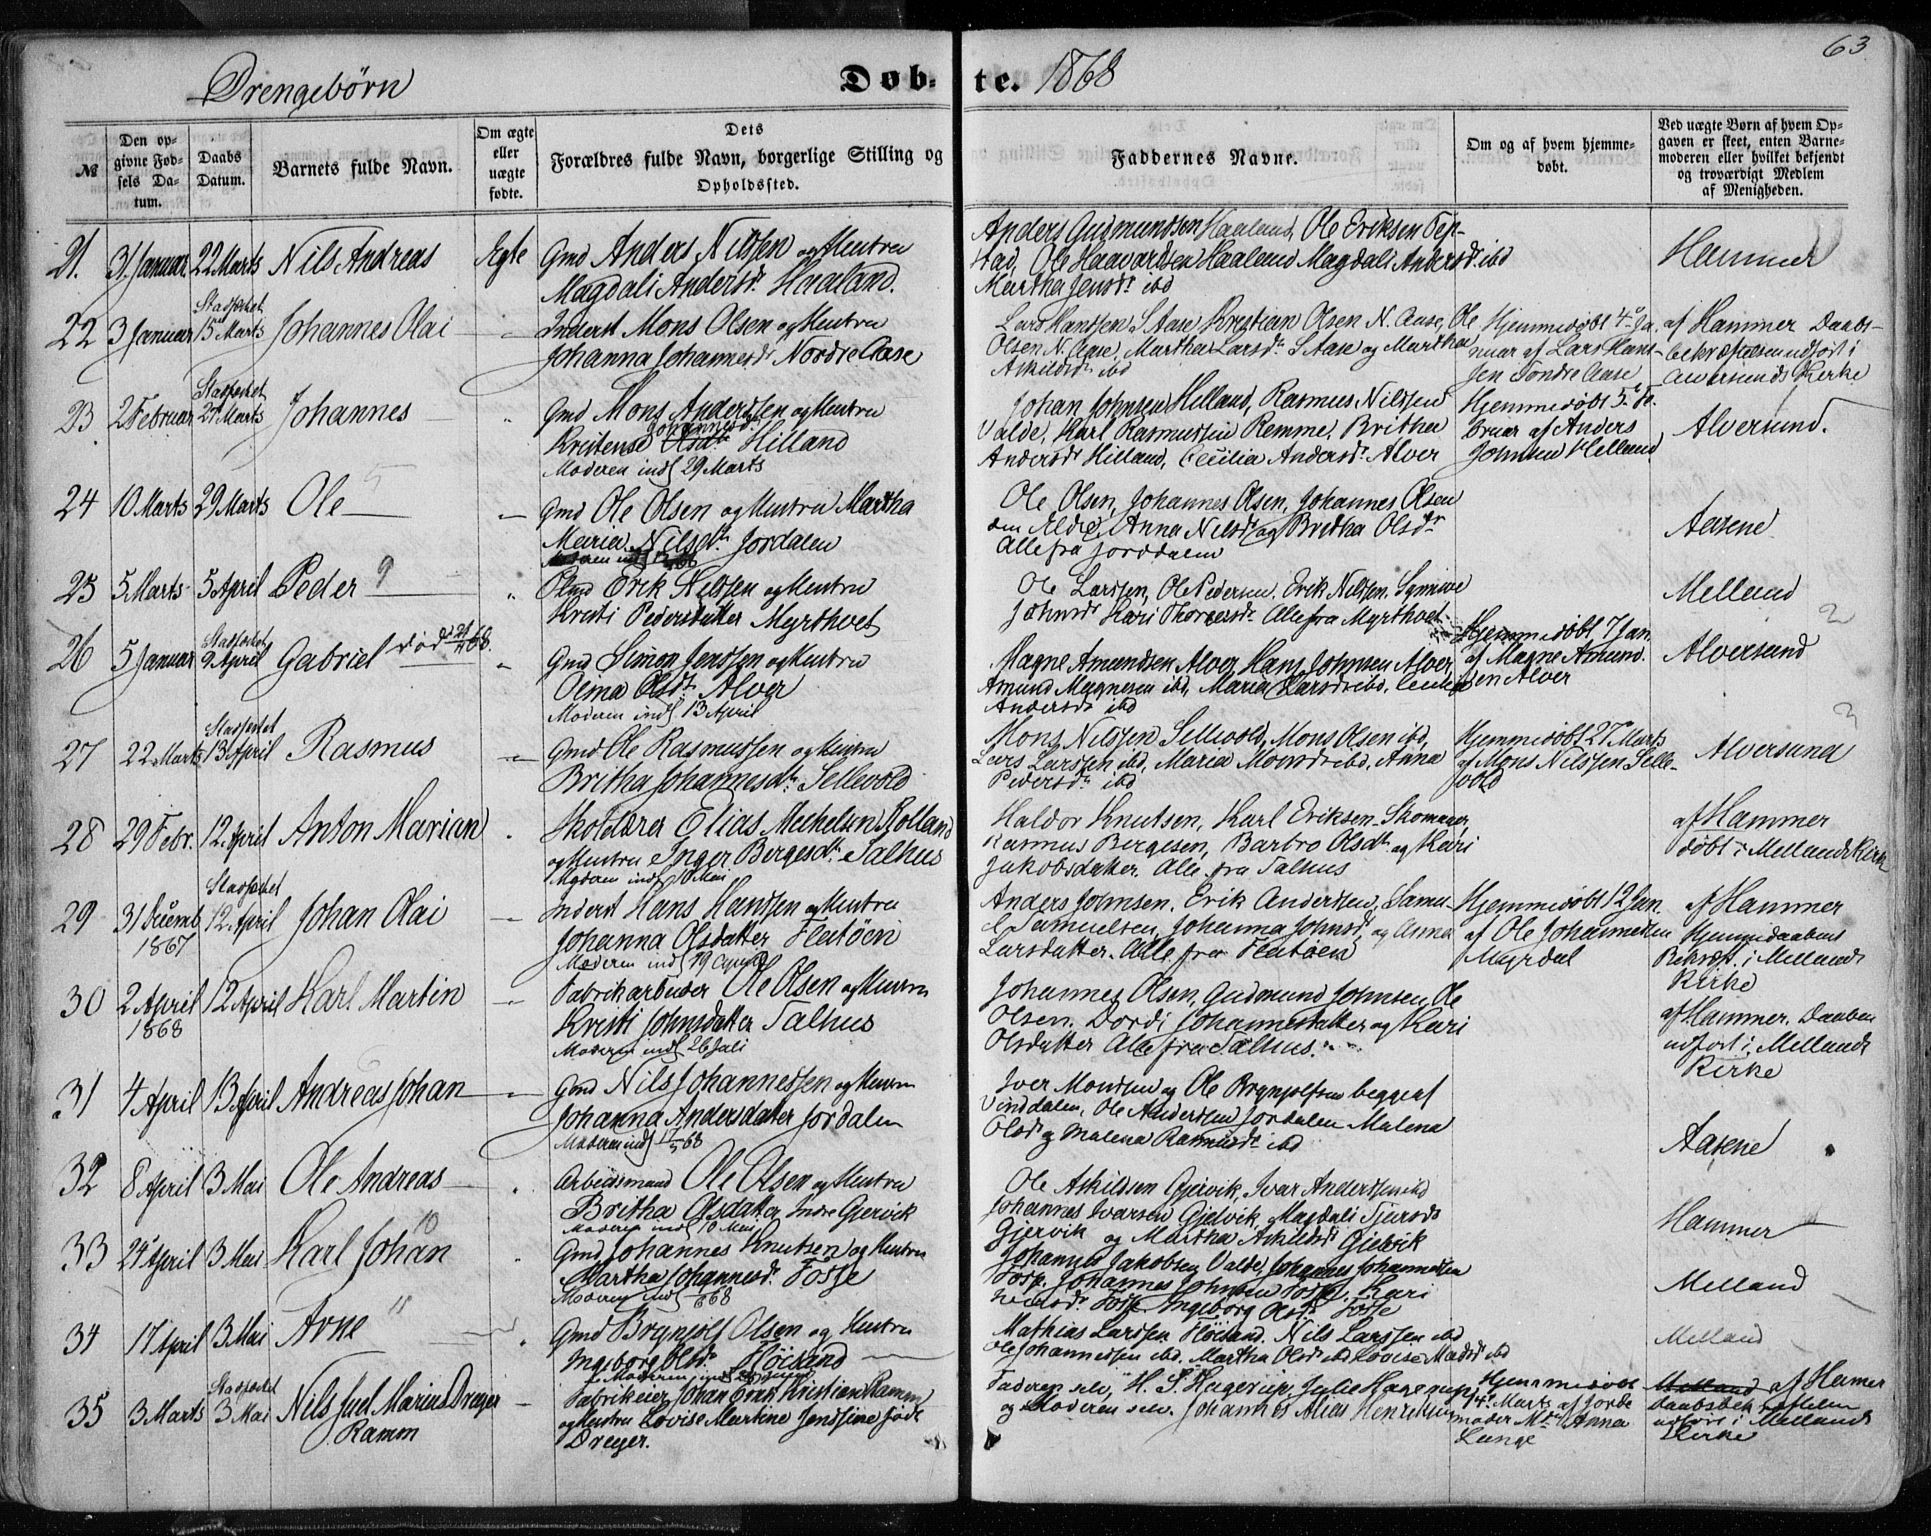 63
Drengebørn
Døbte. 1868
№
Den opgivne Fødsels Datum.
Daabs Datum.
Barnets fulde Navn.
Om ægte eller uægte fødte.
Dets Forældres fulde Navn, borgerlige Stilling og Opholdssted.
Faddernes Navne.
Om og af hvem hjemmedøbt.
Ved uægte Børn af hvem Opgaven er skeet, enten Barnemoderen eller hvilket bekjendt og troværdigt Medlem af Menigheden.
21. 31. Januar 22 Marts Nils Andreas Egte Gmd Anders Nilssen og Hustru
Magdali Andersdr Haaland.
Anders Gudmundsen Haaland, Ole Eriksen Tep-
stad, Ole Haavardsen Haaland Magdali Andersdr ibd
Martha Jensdr ibd
Hammer
22 3 Januar Stadfæstet 15 Marts Johannes Olai Inderst Mons Olsen og Hustru
Johanna Johannesdr Nordre Aase
Lars Hanssen S Aase Kristian Olsen N. Aase, Ole
Olsen N. Aase, Martha Larsdr S Aase og Martha
Askildsdr ibd
Hjemmedøbt 4 Ja-
nuar af Lars Hans-
sen Søndre Aase
af Hammer Daabs-
bekræftelsen udført i
Alversunds Kirke
23 2 Februar Stadfæstet 29 Marts Johannes Gmd Mons Anderssen og Hustru
Kristense Johannesdr Hilland
Moderen indl 29 Marts
Johan Johnsen Helland, Rasmus Nilssen
Valde, Karl Rasmussen Remme, Britha
Andersdr Hilland, Cecilia Andersdr Alver
Hjemmedøbt 5 Fe-
bruar af Anders
Johnsen Helland
Alversund.
24 10 Marts 29 Marts Ole Gmd Ole Olsen og Hustru Martha
Maria Nilsdr Jordalen
Ole Olsen, Johannes Olsen, Johannes Olsen
den Eldre, Anna Nilsdr og Britha Olsdr
Alle fra Jorddalen
Aasene
25 5 Marts 5 April Peder 9 Gmd Erik Nilssen og Hustru
Kristi Pedersdatter Myrthvet
Ole Larssen, Ole Pedersen, Erik Nilssen, Synneve
Johnsdr Kari Thorgersdr Alle fra Myrthvet
Melland
26 5 Januar Stadfæstet 9 April Gabriel død Gmd Simon Jenssen og Hustru
Oline Olsdr Alver
Moderen indl 13 April
Magne Amundsen Alver, Hans Johnsen Alver
Amund Magnesen ibd, Maria Larsdr ibd, Cecilia
Andersdr ibd
Hjemmedøbt 7 Jan.
af Magne Amund-
sen Alver
Alversund
2
27 22 Marts Stadfæstet 13 April Rasmus Gmd Ole Rasmussen og Hustru
Britha Johannesdr Sellevold
Mons Nilssen Sellevold, Mons Olsen ibd,
Lars Larssen ibd, Maria Monsdr ibd, Anna
Pedersdr ibd
Hjemmedøbt 27 Marts
af Mons Nilssen Selle-
vold
Alversund
3
28 29 Febr. 12 April Anton Marian Skolelærer Elias Mechelsen Rolland
og Hustru Inger Bergesdr Salhus
Moderen indl 10 Mai
Haldor Knutsen, Karl Eriksen Skomager,
Rasmus Bergesen, Barbro Olsdr og Kari
Jakobsdatter. Alle fra Salhus
af Hammer
døbt i Mellands Kirke
29 31 Decemb 1867 Stadfæstet 12 April Johan Olai Inderst Hans Hanssen og Hustru
Johanna Olsdatter Flatøen
Moderen indl 19 April
Anders Johnsen, Erik Anderssen, Samu-
el Samuelsen, Johanna Johnsdr og Anna
Larsdatter. Alle fra Flatøen
Hjemmedøbt 12 Jan.
af Ole Johannessen
Myrdal
af Hammer
Hjemmedaabens
Bekræft. i Mellands
Kirke
30 2 April 1868 12 April Karl Martin Fabrikarbeider Ole Olsen og Hustru
Kristi Johnsdatter Salhus
Moderen indl 26 Juli
Johannes Olsen, Gudmund Johnsen, Ole
Olsen, Dordi Johannesdatter og Kari
Olsdatter Alle fra Salhus.
af Hammer. Daaben
udført i Mellands
Kirke
31 4 April 13 April Andreas Johan Gmd Nils Johannessen og Hustru
Johanna Andersdatter Jordalen
Moderen indl 17/5 68
Iver Monssen og Ole Brynjolfsen begge af
Vinddalen, Ole Anderssen Jordalen Malena
Olsdr og Malena Rasmusdr ibd
Aasene
32 8 April 3 Mai Ole Andreas Arbeidsmand Ole Olsen og Hustru
Britha Olsdatter, Indre Gjervik
Moderen indl 10 Mai
Ole Askildsen Gjervik, Ivar Anderssen ibd
Johannes Ivarsen Gjelvik, Magdali Sjursdr
Gjervik og Martha Askildsdr Gjelvik
Hammer
33 24 April 3 Mai Karl Johan 10 Gmd Johannes Knutsen og Hustru
Martha Johannesdr Fosse
Johannes Jakobsen Valde, Johannes Johannessen
Fosse, Johannes Johnsen Fosse, Kari
Nilsdr Fosse Ingeborg Olsdr Fosse
Melland
34 17 April 3 Mai Arne 11 Gmd Brynjolf Olsen og Hustru
Ingeborg Olsdr Høisand
Mathias Larssen Høisand, Nils Larssen ibd
Ole Johannessen ibd, Martha Olsdr ibd Lovise Madsdr ibd
Melland
35 3 Marts Stadfæstet 3 Mai Nils Juel Marius Dreyer Ramm Fabrikeier Johan Ernst Kristian Ramm
og Hustru Lovise Martine Jensine Juel
Dreyer.
Faderen selv, H. S. Hagerup, Julie Hagerup
og Moderen selv. Johannes Alias Henriksen
Hjemmedøbt
14 Marts af Jorde
moder Mdm Anna
Lange
Melland af Hamer
Daabsbekræftelsen
udført i Mellands
Kirke